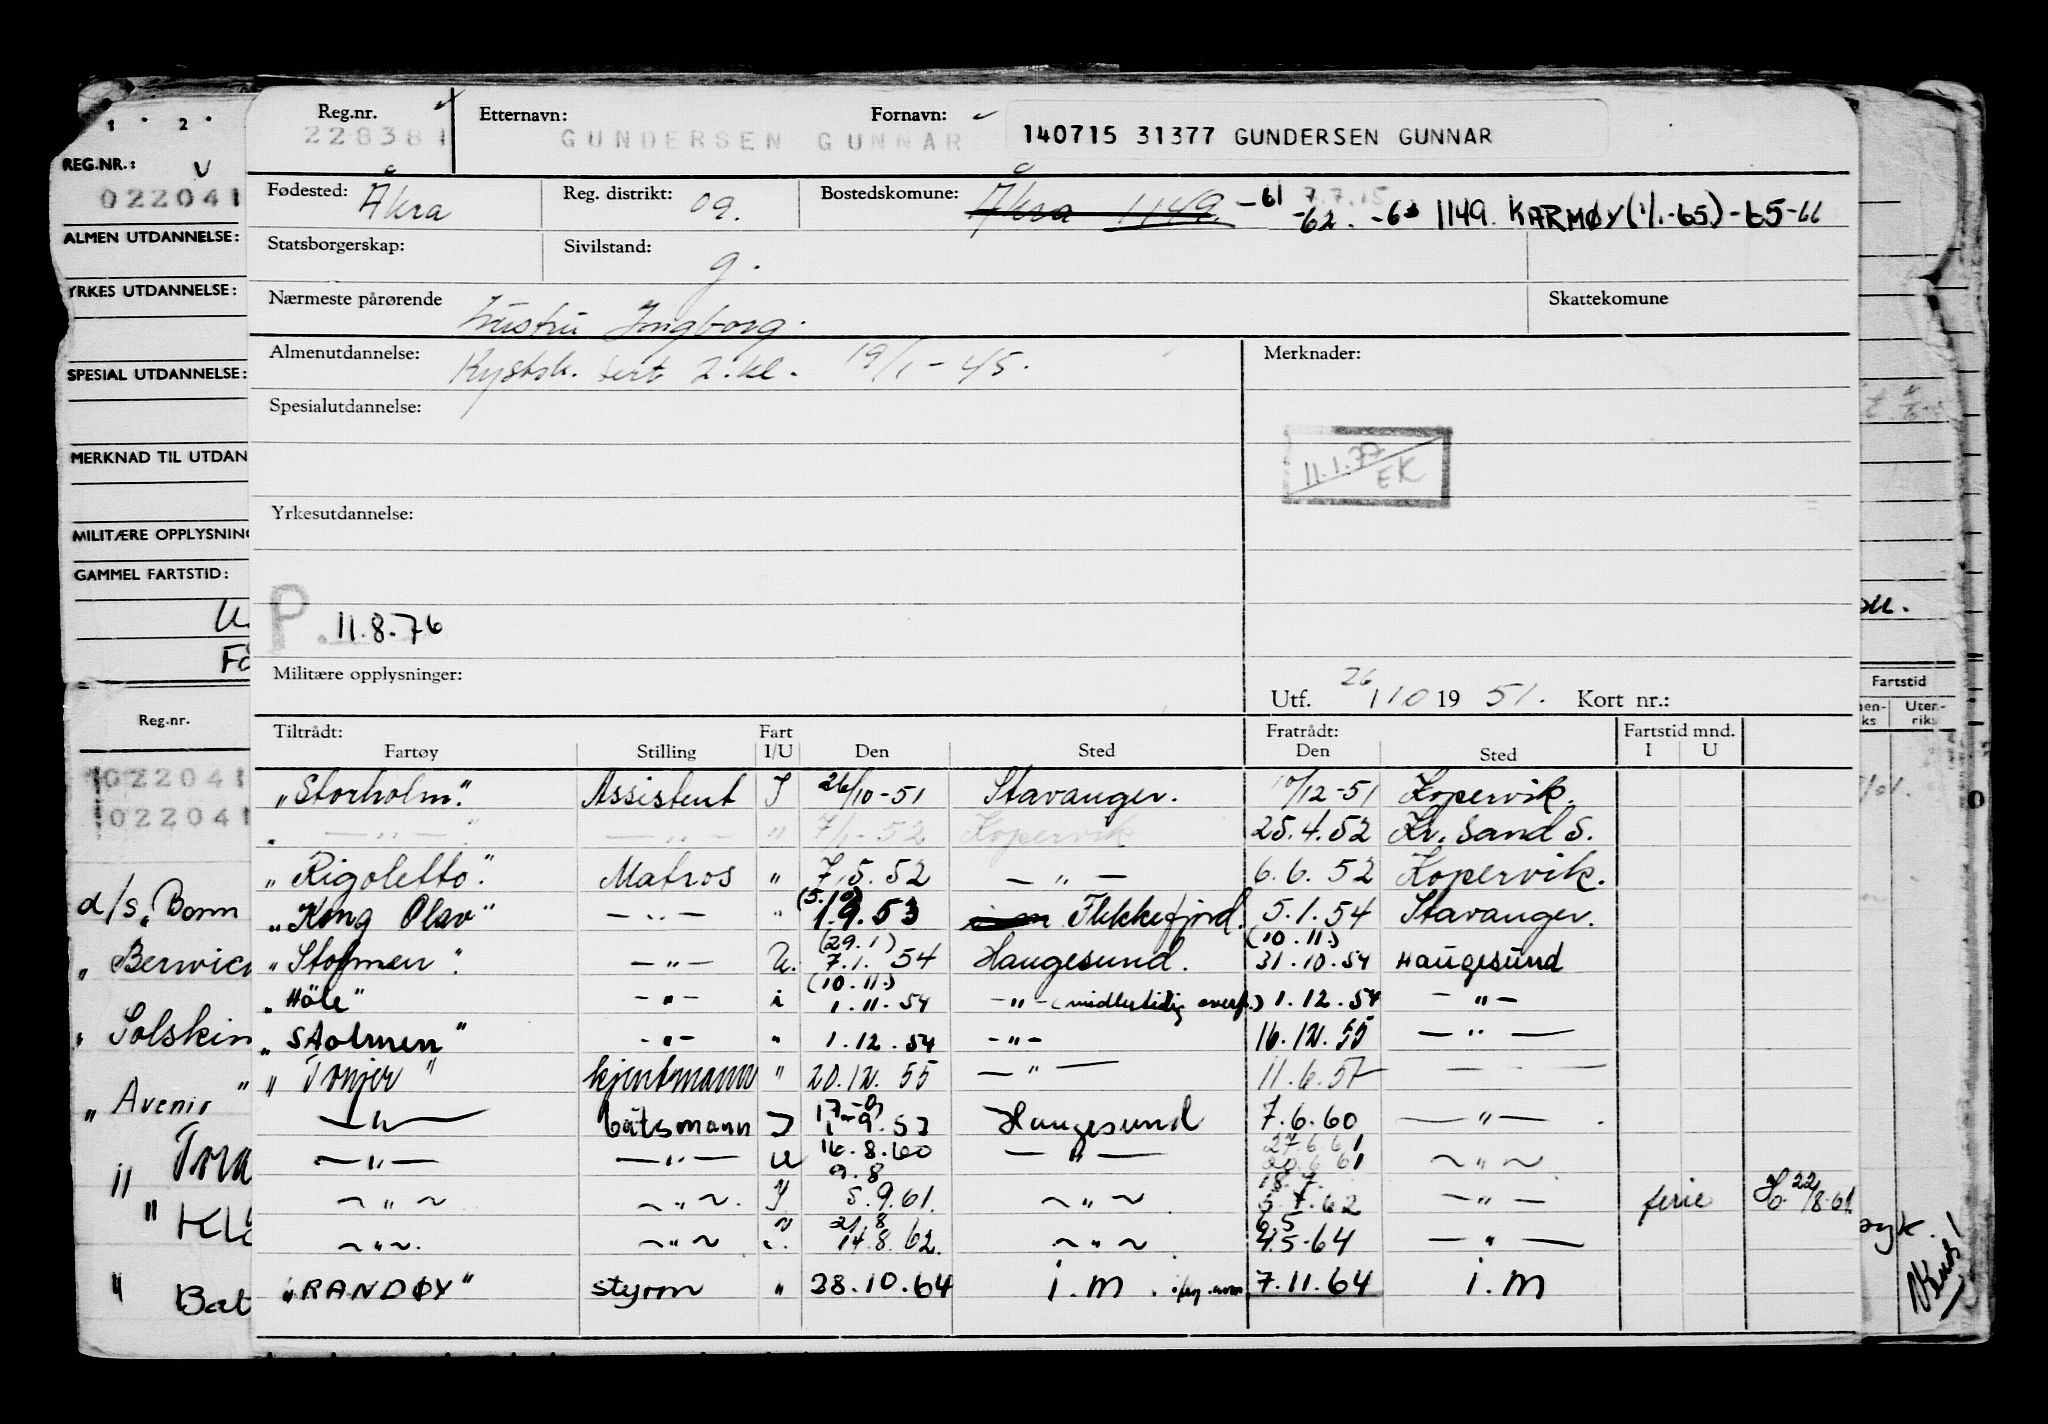 Reg.nr. Etternavn: Fornavn:
228381 GUNDERSEN GUNNAR 140715 31377 GUNDERSEN GUNNAR
Fødested: Åkra Reg. distrikt: 09. Bostedskomune: Åkra 1149. -61 7.7.15 -62. -63 1149. KARMØY (1/1-65) -65-66
Statsborgerskap: Sivilstand: g.
Nærmeste pårørende Hustru Ingborg. Skattekomune
Almenutdannelse: Kystsk. sert 2.kl. 19/1-45. Merknader:
Spesialutdannelse:
11.1.77 EK
Yrkesutdannelse:
P. 11.8.76
Militære opplysninger:
Utf. 26/10 19 51. Kort nr.:
Tiltrådt: Fart Fratrådt: Fartstid mnd.
Fartøy Stilling I/U Den Sted Den Sted I U
"Storholm." Assistent I 26/10-51 Stavanger. 10/12-51 Kopervik.
" — " — " — " — " 7/1-52 Kopervik 25.4.52 Kr. Sand S.
"Rigoletto". Matros " 7.5.52 — " — 6.6.52 Kopervik.
"Kong Olav" — " — " 1.9.53 Flekkefjord. 5.1.54 Stavanger.
(29.1) (10.11.)
"Stolmen". — " — U. 7.1. 54 Haugesund. 31.10.54 Haugesund
(10.11.)
"Höle" — " — i 1.11.54 — " — (midlertidig overf.) 1.12.54 — " —
"Stolmen" — " — " 1.12.54 — " — 16.12.55 — " —
"Tonjer" kjentmann " 20.12.55 — " — 11.6.57 — —
— " — båtsmann I Haugesund 7.6.60 — " —
27.6.61
— " — — " — U 16.8.60 — " — 20.6.61 ~ " ~
9.8 18.7.
~ " ~ ~ " ~. I 5.9.61. ~ " ~ 5.7.62 — " — ferie 22/8.61
21.8 6.5
~ " ~. ~ " ~ 14.8.62. ~ " ~ 4.5-64 — " —
"RANDØY" styrm " 28.10.64 i.m. 7.11.64 i.m
1 2
REG.NR.: V
022041
ALMEN UTDANNELSE:
YRKES UTDANNELSE:
SPESIAL UTDANNELSE:
MERKNAD TIL UTDAN
MILITÆRE OPPLYSNING
GAMMEL FARTSTID:
Reg.nr.
022041
022041
d/s "Bonn
" Berwick
" Solskin
" Avenir "
Fartstid
Uten-
riks